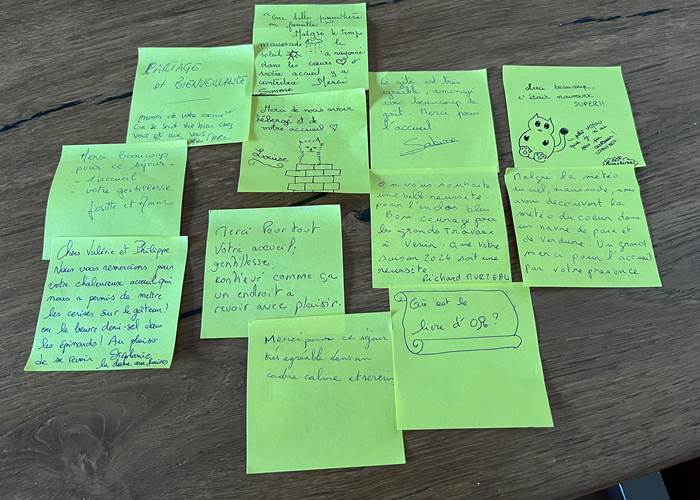 "Une belle parenthèse
en famille"
Malgré le temps
maussade le
soleil a rayonné
dans les cœurs ♡
votre accueil y a
contribué Merci
Simone
PARTAGE
et BIENVEILLANCE
Merci de votre cœur
On se sent très bien chez
vous et avec vous
Merci de nous avoir
hébergé et de
votre accueil ♡
Louise
Le gîte est très
agréable, aménagé
avec beaucoup de
goût. Merci pour
l'accueil
Sabine
Merci beaucoup,
c'était vraiment
SUPER!!
Merci beaucoup
pour ce séjour
- l'accueil
- votre gentillesse
Josette et Omar
On vous souhaite
une belle réussite
pour l'enclos bleu
Bon courage pour
les grands Travaux
à Venir. Que votre
saison 2024 soit une
réussite.
Richard
Malgré la météo
du ciel, maussade, nous
avons découvert la
météo du coeur dans
un havre de paix et
de Verdure. Un grand
merci pour l'accueil
par votre présence
Chers Valérie et Philippe
Nous vous remercions pour
votre chaleureux accueil qui
nous a permis de mettre
les cerises sur le gâteau!
ou le beurre demi-sel dans
les épinards! Au plaisir
de se revoir. Stéphanie
la dame aux
Merci Pour tout
votre accueil,
gentillesse.
continué comme ça
un endroit a
revoir avec plaisir.
Où est le
livre d'OR?
Merci pour ce séjour
très agréable dans un
cadre calme et serein